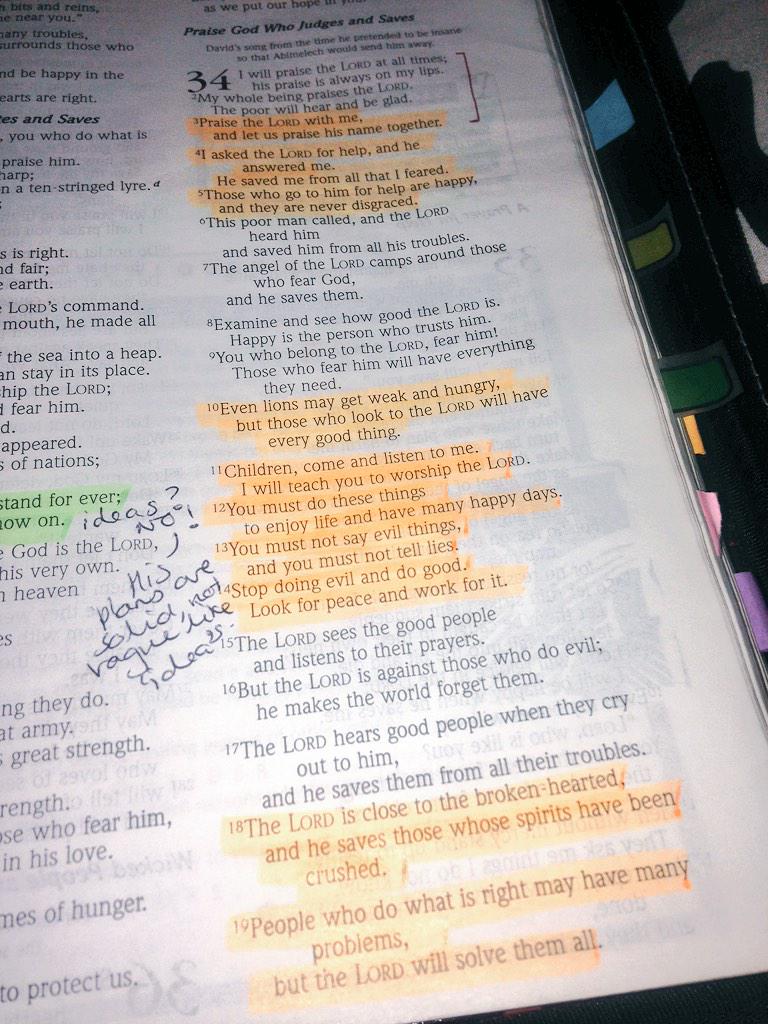 h bits and reins,
e near you."
many troubles,
surrounds those who
nd be happy in the
earts are right.
es and Saves
, you who do what is
praise him.
harp;
n a ten-stringed lyre.ᵈ
s is right.
nd fair;
e earth.
e LORD's command.
mouth, he made all
f the sea into a heap.
an stay in its place.
ship the LORD;
d fear him.
d.
appeared.
s of nations;
stand for ever;
now on.
e God is the LORD,
his very own.
n heaven
es
ng they do.
at army.
s great strength.
rength.
ose who fear him,
in his love.
mes of hunger.
to protect us.
ideas?
NO!
His
plans are
solid, not
vague like
ideas.
as we put our hope in your
Praise God Who Judges and Saves
David's song from the time he pretended to be insane
so that Abimelech would send him away.
34 I will praise the LORD at all times;
his praise is always on my lips.
2My whole being praises the LORD.
The poor will hear and be glad.
3Praise the LORD with me,
and let us praise his name together.
4I asked the LORD for help, and he
answered me.
He saved me from all that I feared.
5Those who go to him for help are happy,
and they are never disgraced.
6This poor man called, and the LORD
heard him
and saved him from all his troubles.
7The angel of the LORD camps around those
who fear God,
and he saves them.
8Examine and see how good the LORD is.
Happy is the person who trusts him.
9You who belong to the LORD, fear him!
Those who fear him will have everything
they need.
10Even lions may get weak and hungry,
but those who look to the LORD will have
every good thing.
11Children, come and listen to me.
I will teach you to worship the LORD.
12You must do these things
to enjoy life and have many happy days.
13You must not say evil things,
and you must not tell lies.
14Stop doing evil and do good.
Look for peace and work for it.
15The LORD sees the good people
and listens to their prayers.
16But the LORD is against those who do evil;
he makes the world forget them.
17The LORD hears good people when they cry
out to him,
and he saves them from all their troubles.
18The LORD is close to the broken-hearted,
and he saves those whose spirits have been
crushed.
19People who do what is right may have many
problems,
but the LORD will solve them all.